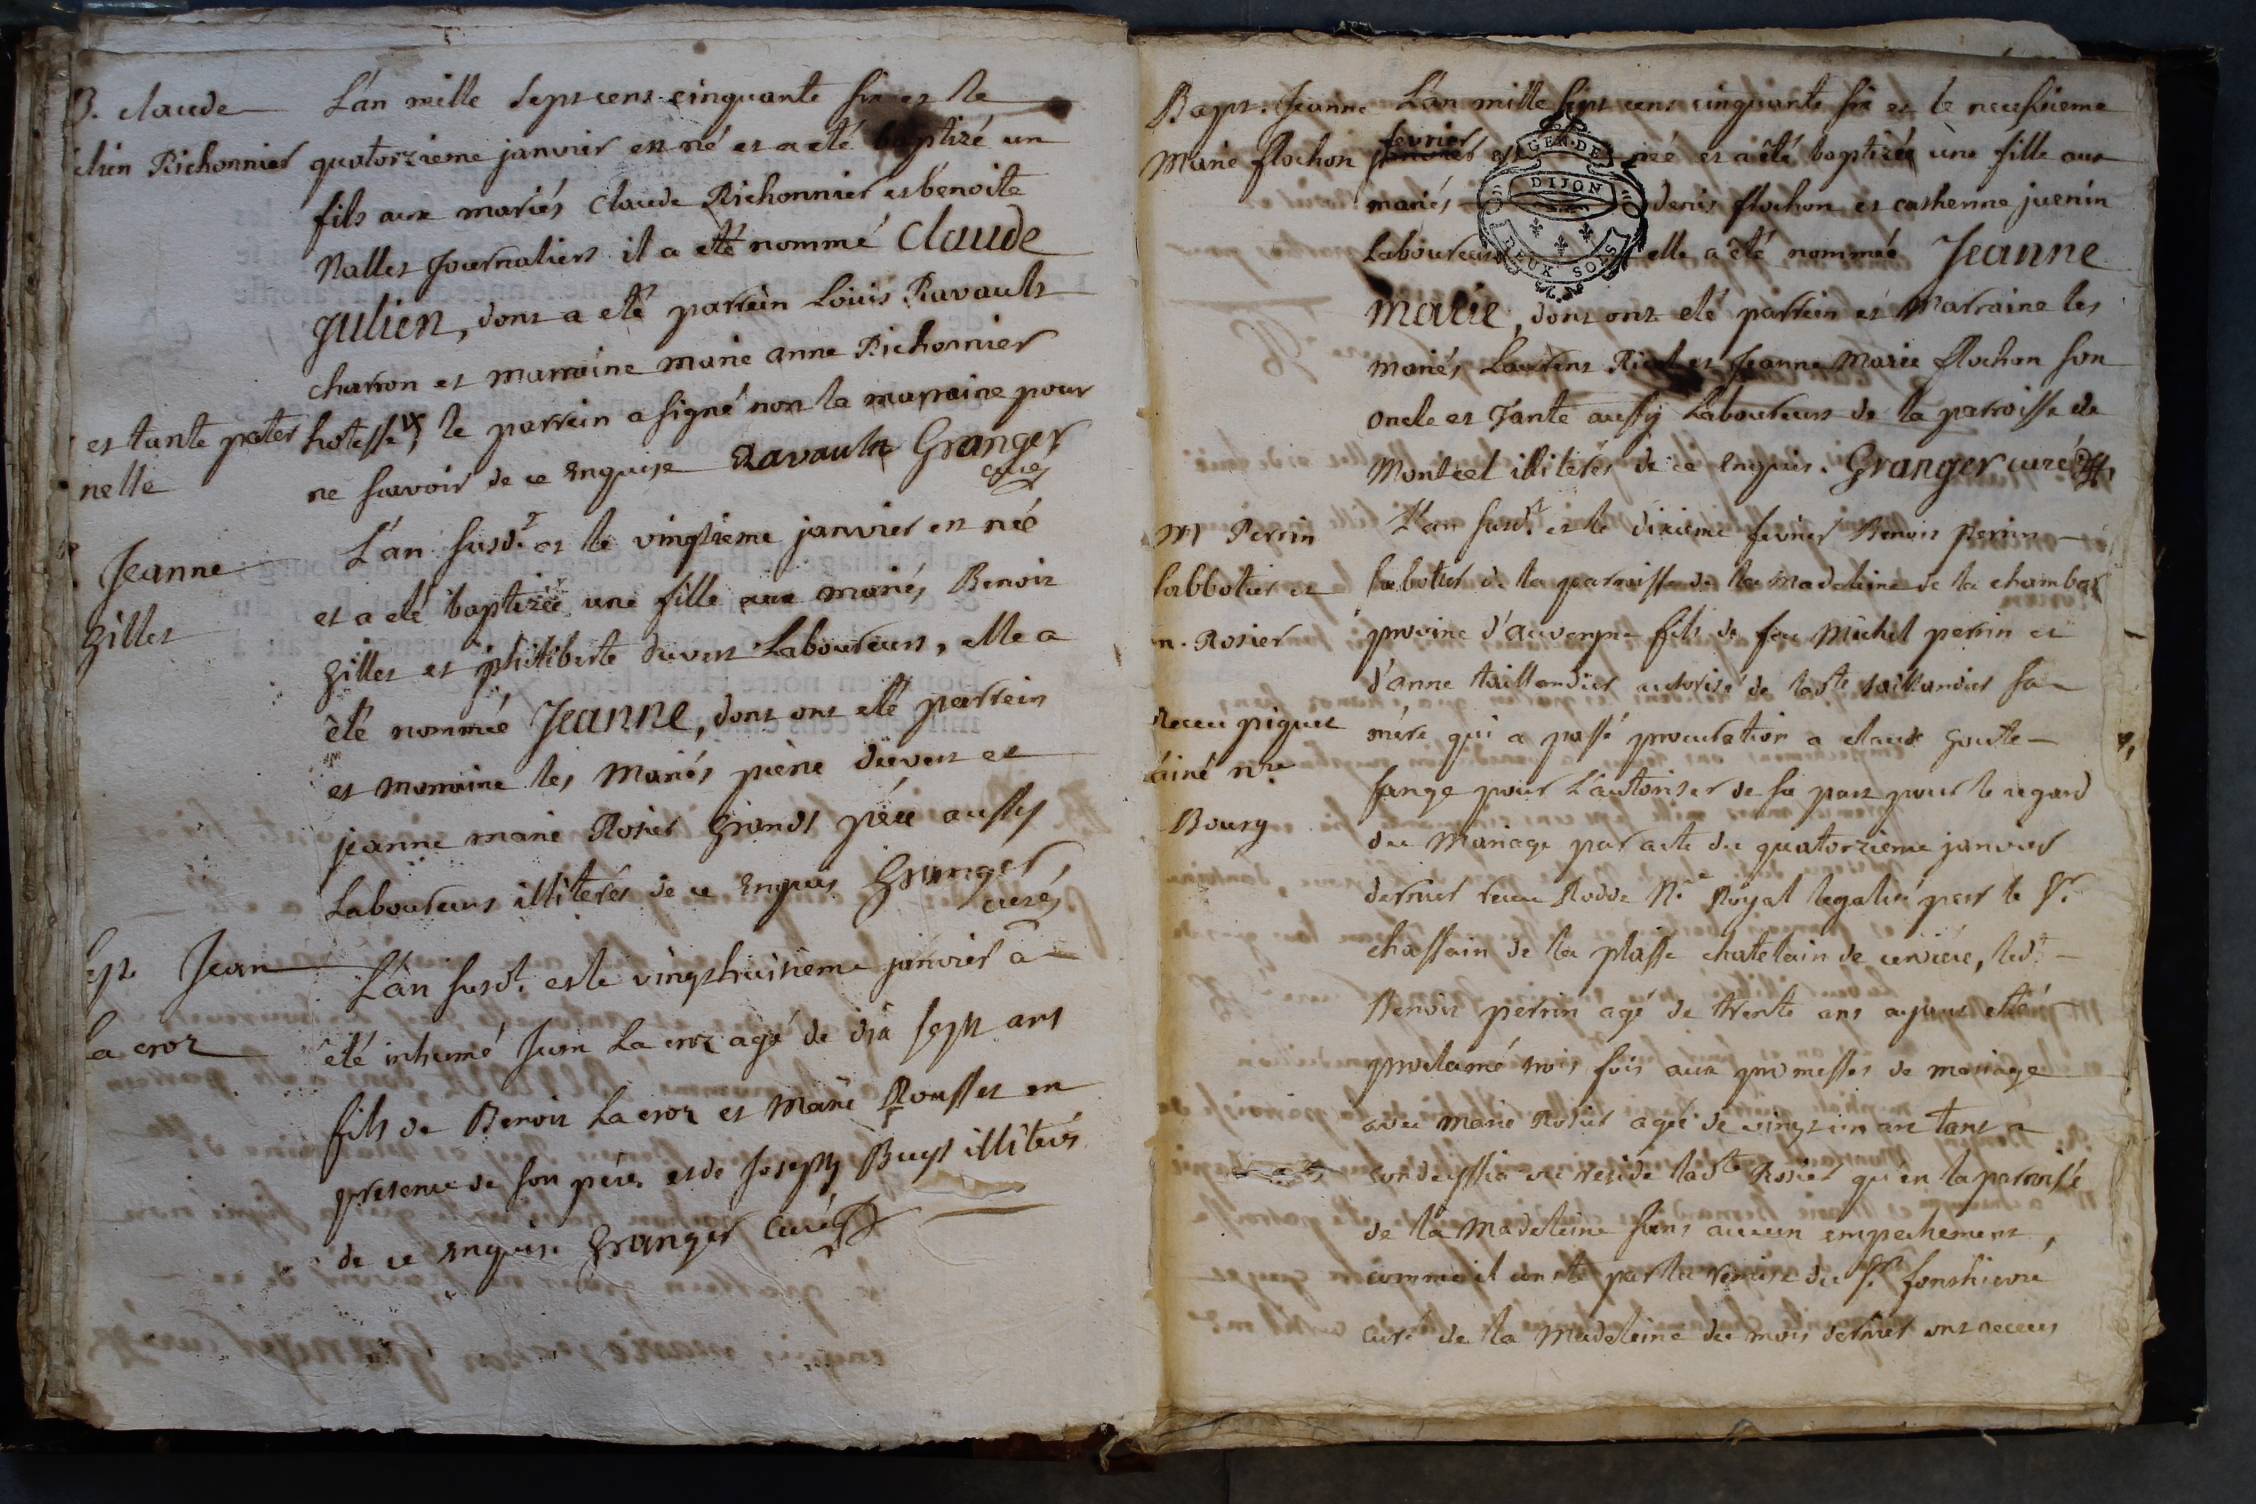 B. Claude
L'an mille sept cens cinquante six et le
ulien Richonnier
quatorzieme janvier est né et a eté baptizé un
fils aux mariés Claude Richonnier et benoite
Nallet Journaliers il a eté nommé Claude
Julien, dont a eté parrein Loüis Ravault
charron et marraine marie anne Richonnier
et tante pater
nelle
hotesse, le parrein a signé non la marraine pour
ne scavoir de ce Enquise Ravault Granger
curé
Jeanne
Gillet
L'an susdt. et le vingtieme janvier est née
et a eté baptizée une fille aux mariés Benoit
Gillet et philiberte duvert Laboureurs, elle a
êté nommée Jeanne, dont ont eté parrein
et marraine les mariés pierre duvert et
jeanne marie Rosier Grands pére aussy
Laboureurs illiterés de ce Enquis Granger
curé
Sep. Jean
La croz
L'an susdt. et le vingt huitieme janvier a
êté inhumé Jean La croz agé de dix sept ans
fils de Benoit La croz et Marie Rousset en
presence de son pére et de Joseph Buyt illiterés
de ce Enquis. Granger curé
Bapt. Jeanne
Marie flochon
L'an mille sept cens cinquante six et le neufvieme
fevrier
janvier est née et a êté baptizée une fille aux
GEN. DE
DIJON
DEUX SOLS
mariés denis flochon et catherine juenin
Laboureurs elle a êté nommée Jeanne
Marie, dont ont eté parrein et Marraine les
mariés Laurent Riod et Jeanne Marie flochon son
oncle et Tante aussy Laboureurs de la parroisse de
Montcel illiterés de ce Enquis. Granger curé
M Perrin
sabbotier et
m. Rosier
L'an susdt. et le dixieme fevrier Benoit perrin
sabotier de la parroisse de la Madeleine de la chambas
provine d'auvergne fils de feu Michel perrin et
d'anne taillandier autorisé de ladte taillandier sa
receu piquet
ainé nre
Bourg
mére qui a passé procuration a claude goutte
fange pour L'autoriser de sa part pour le regard
du Mariage par acte du quatorzieme janvier
dernier receu Rodde Nre Royal legalisé par le Sr
chassain de la plasse chatelain de cerviere, ledt
Benoit perrin agé de trente ans ayant etté
proclamé trois fois aux promesses de mariage
avec Marie Rosier agée de vingt un an tant a
condeyssia ou reside ladte Rosier qu'en la parroisse
de la Madeleine sans aucun empechement,
comme il conste par la remise du Sr
curé de la Madeleine du mois dernier ont receus